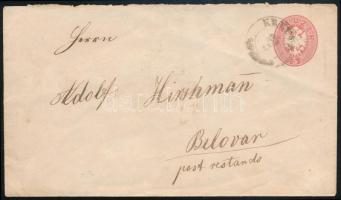 Herrn
Adolf Hirshman
Belovar
post restando